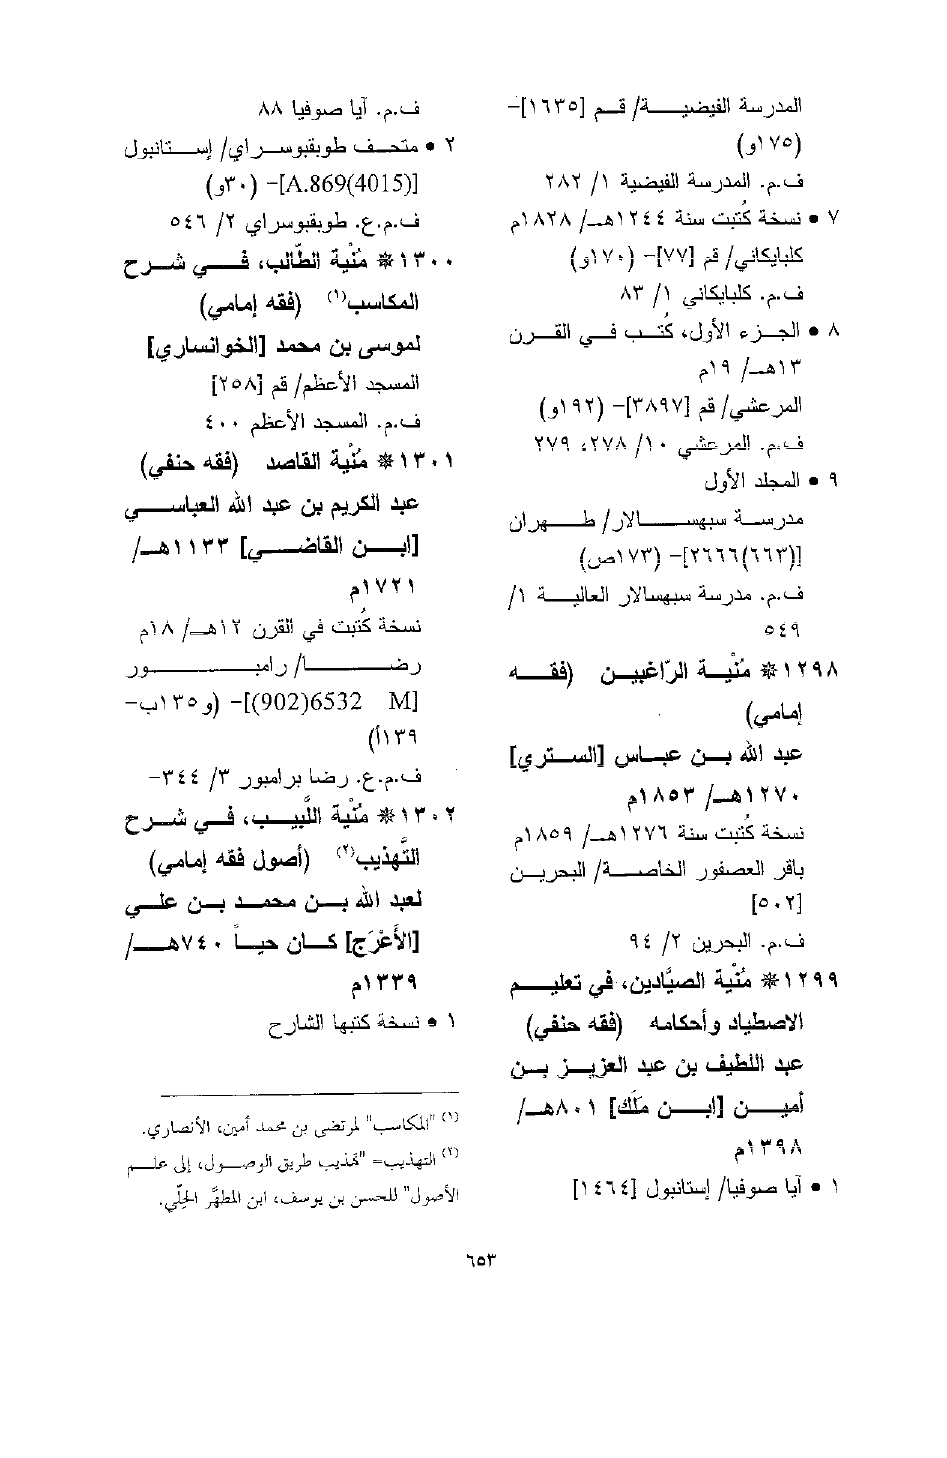 المدرسة الفيضية/ قم [١٦٣٥]-
(١٧٥و)
ف.م. المدرسة الفيضية ١/ ٢٨٢
٧ • نسخة كُتبت سنة ١٢٤٤هـ/ ١٨٢٨م
كلبايكاني/ قم [٧٧]- (١٧٠و)
ف.م. كلبايكاني ١/ ٨٣
٨ • الجزء الأول، كُتب في القرن
١٣هـ/ ١٩م
المرعشي/ قم [٣٨٩٧]- (١٩٢و)
ف.م. المرعشي ١٠/ ٢٧٨، ٢٧٩
٩ • المجلد الأول
مدرسة سبهسالار/ طهران
[(٦٦٣)٢٦٦٦]- (١٧٣ص)
ف.م. مدرسة سبهسالار العالية ١/
٥٤٩
١٢٩٨* مُنْية الرّاغبين (فقه
إمامي)
عبد الله بن عباس [الستري]
١٢٧٠هـ/ ١٨٥٣م
نسخة كُتبت سنة ١٢٧٦هـ/ ١٨٥٩م
باقر العصفور الخاصة/ البحرين
[٥٠٢]
ف.م. البحرين ٢/ ٩٤
١٢٩٩* مُنْية الصيَّادين، في تعليم
الاصطياد وأحكامه (فقه حنفي)
عبد اللطيف بن عبد العزيز بن
أمين [ابن مَلَك] ٨٠١هـ/
١٣٩٨م
١ • آيا صوفيا/ إستانبول [١٤٦٤]
ف.م. آيا صوفيا ٨٨
٢ • متحف طوبقبوسراي/ إستانبول
[A.869(4015)]- (٣٠و)
ف.م.ع. طوبقبوسراي ٢/ ٥٤٦
١٣٠٠* مُنْية الطّالب، في شرح
المكاسب(١) (فقه إمامي)
لموسى بن محمد [الخوانساري]
المسجد الأعظم/ قم [٢٥٨]
ف.م. المسجد الأعظم ٤٠٠
١٣٠١* مُنْية القاصد (فقه حنفي)
عبد الكريم بن عبد الله العباسي
[ابن القاضي] ١١٣٣هـ/
١٧٢١م
نسخة كُتبت في القرن ١٢هـ/ ١٨م
رضا/ رامبور
[(902)6532 M]- (و١٣٥ب-
١٣٩أ)
ف.م.ع. رضا برامبور ٣/ ٣٤٤-
١٣٠٢* مُنْية اللَّبيب، في شرح
التَّهذيب(٢) (أصول فقه إمامي)
لعبد الله بن محمد بن علي
[الأَعْرَج] كان حياً ٧٤٠هـ/
١٣٣٩م
١ • نسخة كتبها الشارح
(١) "المكاسب" لمرتضى بن محمد أمين، الأنصاري.
(٢) التهذيب= "تهذيب طريق الوصول، إلى علم
الأصول" للحسن بن يوسف، ابن المطهَّر الحِلّي.
٦٥٣